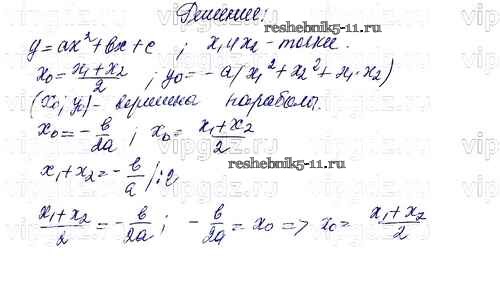 Решение:
reshebnik5-11.ru
y = ax² + bx + c ; x₁ и x₂ - точки.
x₀ = (x₁ + x₂)/2 ; y₀ = - a(x₁² + x₂² + x₁ · x₂)
(x₀; y₀) - вершины параболы.
x₀ = - b/2a ; x₀ = (x₁ + x₂)/2
reshebnik5-11.ru
x₁ + x₂ = - b/a /:2
(x₁ + x₂)/2 = - b/2a ; - b/2a = x₀ => x₀ = (x₁ + x₂)/2